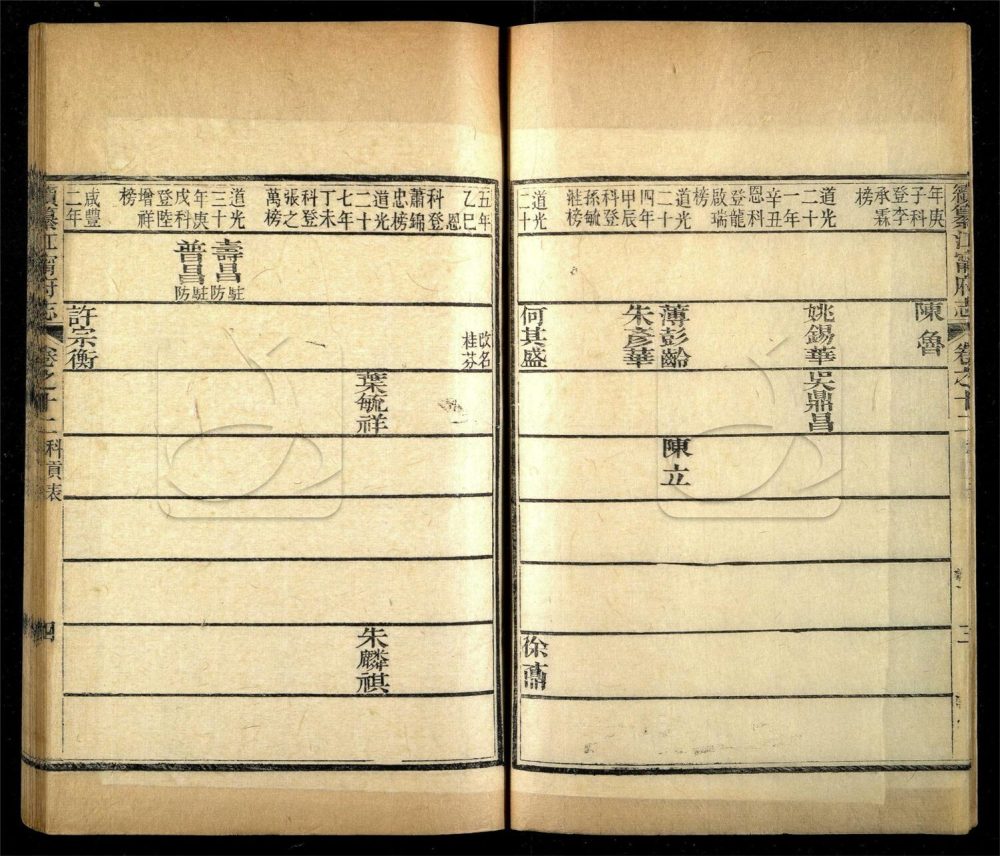 續纂江寧府志
卷之十二
三
年庚
子科
登李
承霖
榜
道光
二十
一年
辛丑
恩科
登龍
啟瑞
榜
道光
二十
四年
甲辰
科登
孫毓
溎榜
道光
二十
陳魯
姚錫華
薄彭齡
朱彥華
何其盛
吳鼎昌
陳立
徐鼒
五年
乙巳
恩
科登
蕭錦
忠榜
道光
二十
七年
丁未
科登
張之
萬榜
道光
三十
年庚
戌科
登陸
增祥
榜
咸豐
二年
壽昌駐防
普昌駐防
改名
桂芬
許宗衡
葉毓祥
朱麟祺
續纂江寧府志
卷之十二
科貢表
四